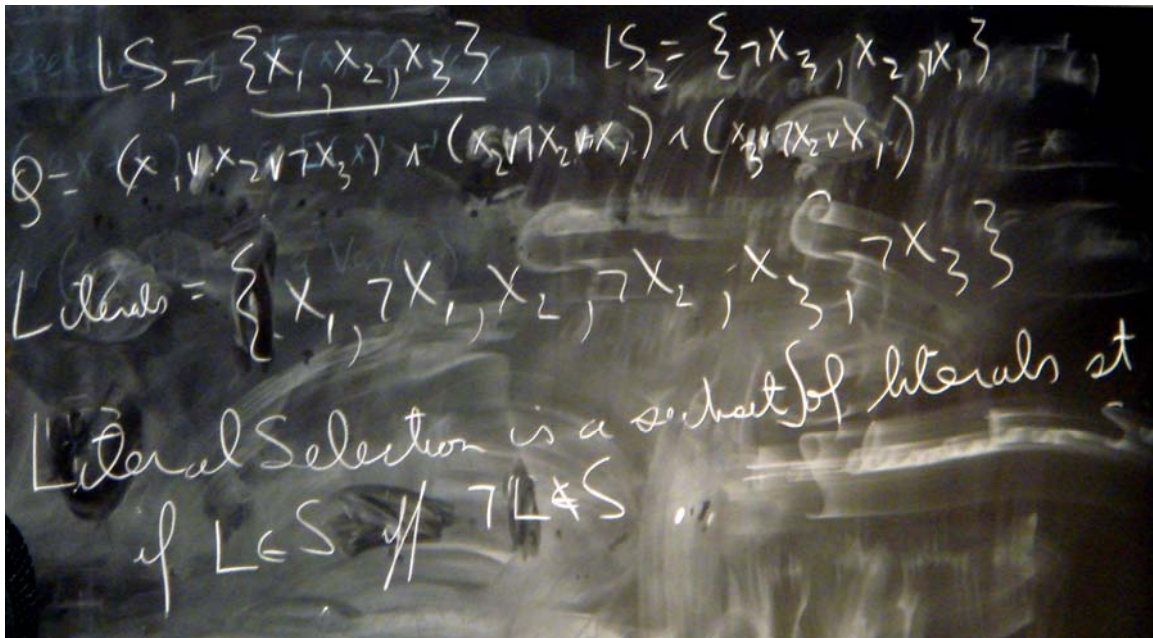 LS₁ = {X₁, X₂, X₃} LS₂ = {¬X₃, X₂, ¬X₁}
(X₁ ∨ X₂ ∨ ¬X₃) ∧ (X₃ ∨ ¬X₂ ∨ ¬X₁) ∧ (X₃ ∨ ¬X₂ ∨ X₁)
Literals = {X₁, ¬X₁, X₂, ¬X₂, X₃, ¬X₃}
Literal Selection is a of literals st
if L ∈ S iff ¬L ∉ S